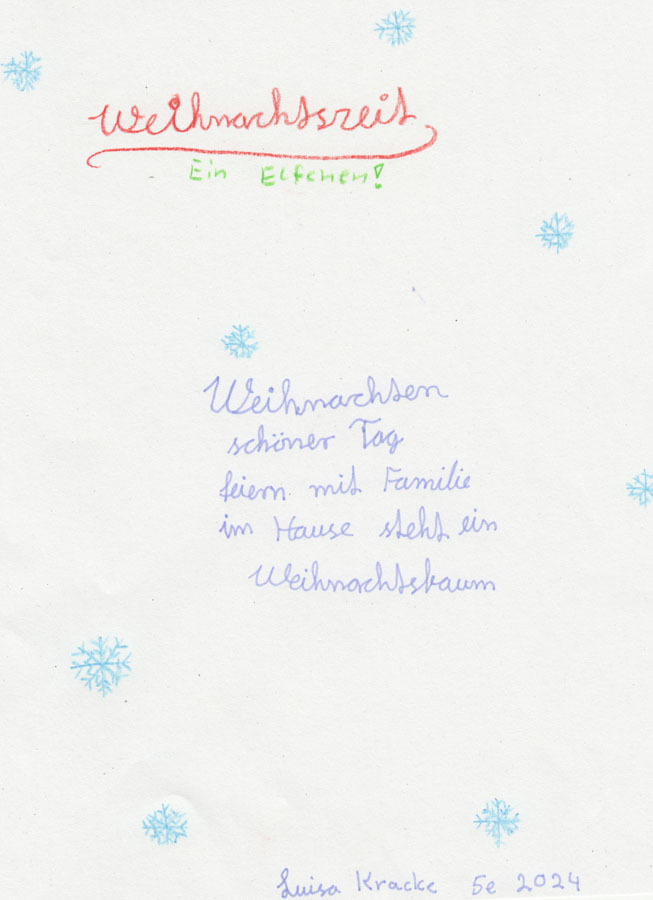 Weihnachtszeit
Ein Elfchen!
Weihnachten
schöner Tag
feiern mit Familie
im Hause steht ein
Weihnachtsbaum
Luisa Kracke 5e 2024